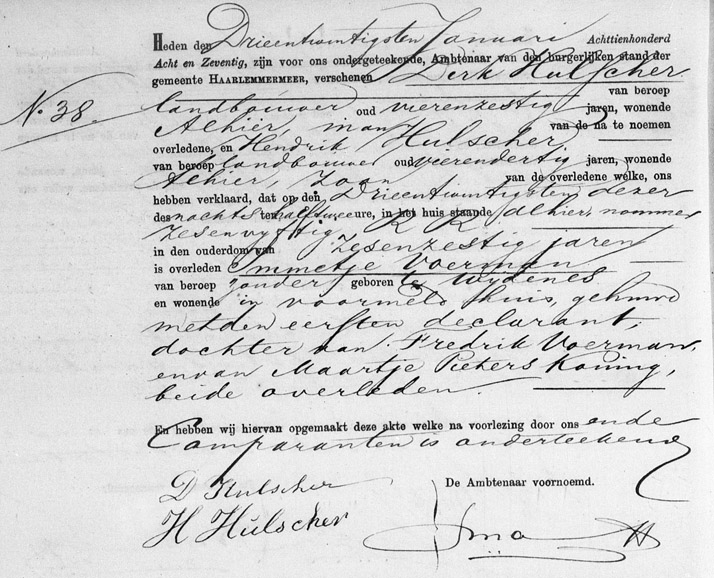 Heden den Drieentwintigsten Januari Achttienhonderd
Acht en Zeventig, zijn voor ons ondergeteekende, Ambtenaar van den burgerlijken stand der
gemeente HAARLEMMERMEER, verschenen Derk Hulscher
van beroep
No. 38.
landbouwer oud vierenzestig jaren, wonende
Alhier, man van de na te noemen
overledene, en Hendrik Hulscher
van beroep landbouwer oud veerendertig jaren, wonende
Alhier, zoon van de overledene welke, ons
hebben verklaard, dat op den Drieentwintigsten dezer
des nachts ten half twee ure, in het huis staande alhier nommer
zesenvyftig K K
in den ouderdom van zesenzestig jaren
is overleden Immetje Voerman
van beroep zonder geboren te Wydenes
en wonende in voormeld huis, gehuwd
met den eersten declarant,
dochter van Fredrik Voerman,
en van Maartje Pieters Koning,
beide overleden.
En hebben wij hiervan opgemaakt deze akte welke na voorlezing door ons en de
Comparanten is onderteekend
D Hulscher
De Ambtenaar voornoemd.
H Hulscher